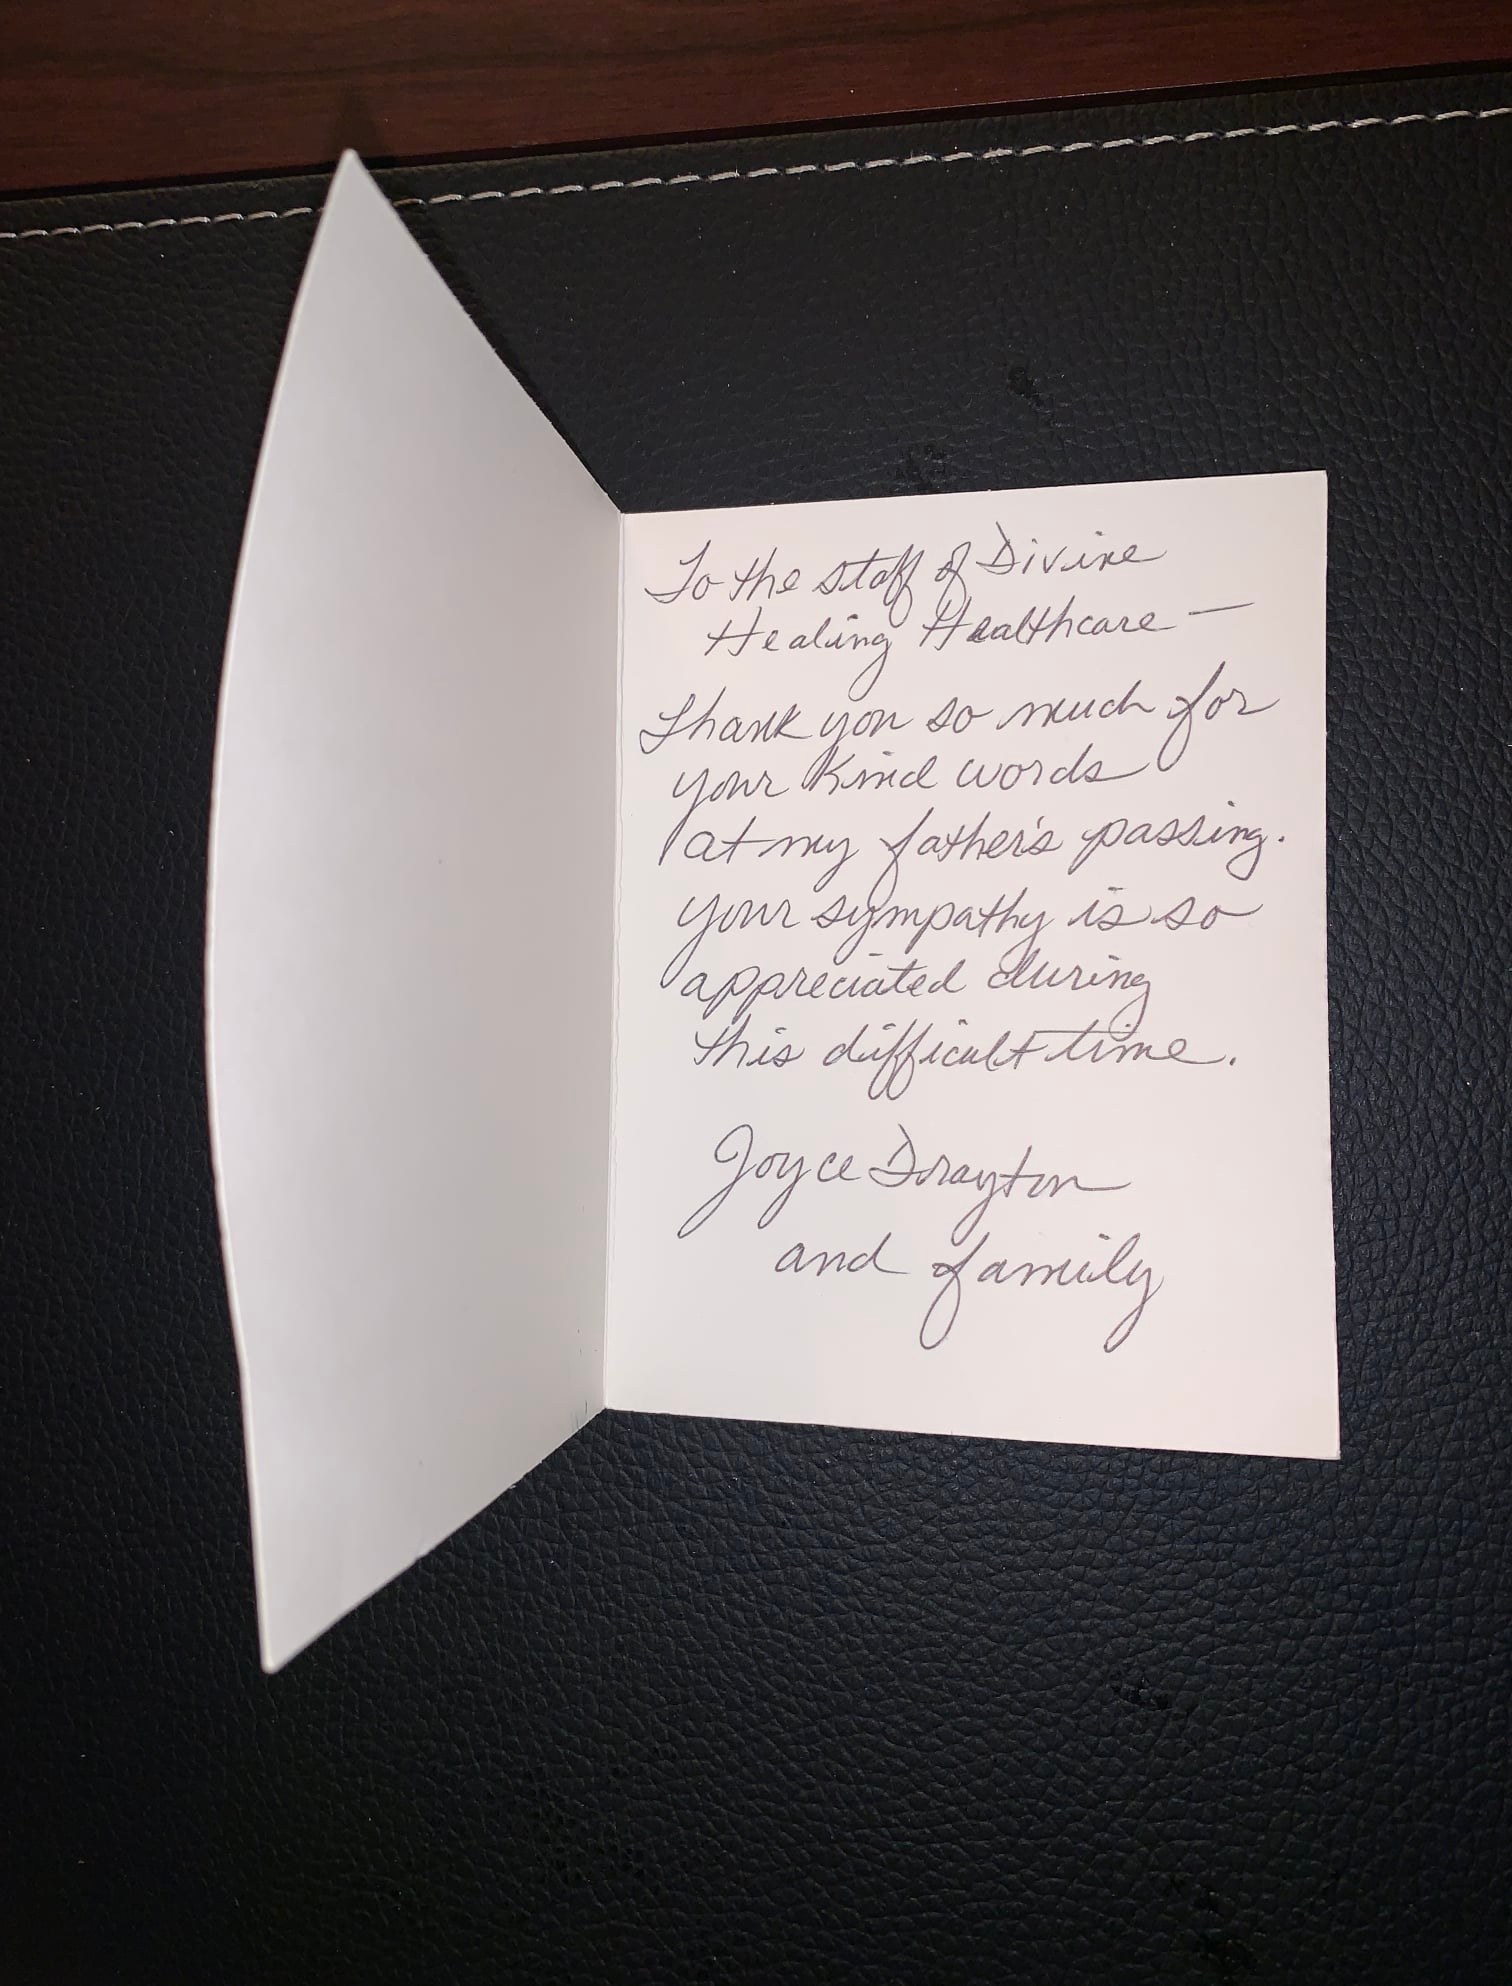 To the staff of Divine
Healing Healthcare —
Thank you so much for
your kind words
at my father's passing.
your sympathy is so
appreciated during
this difficult time.
Joyce Drayton
and family